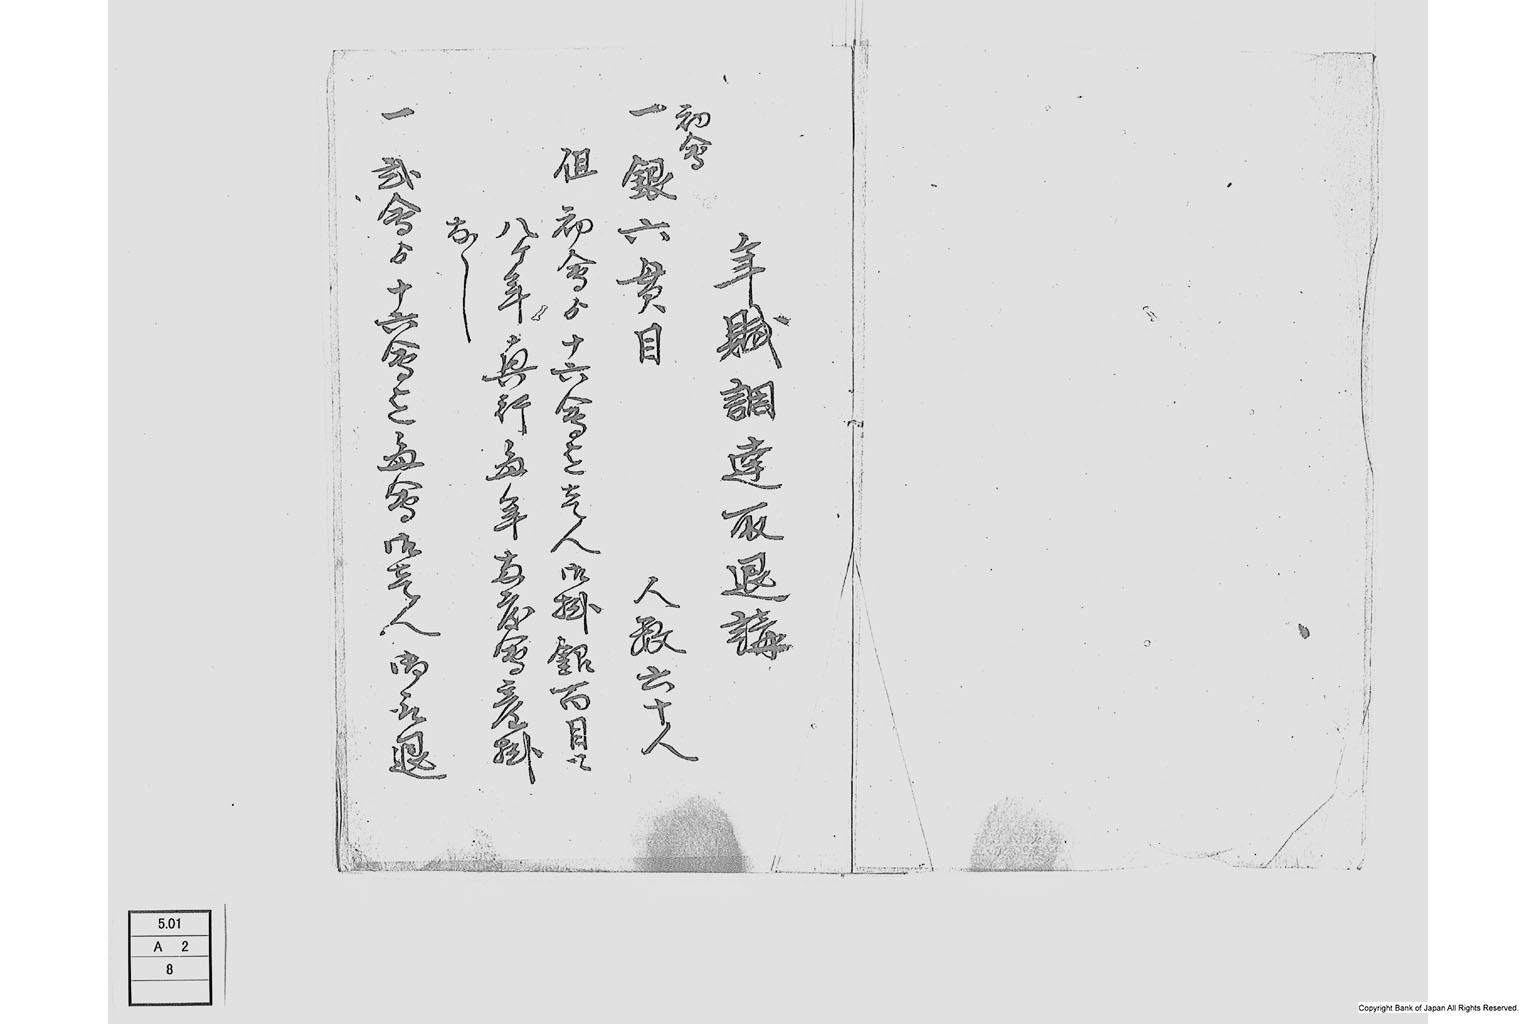 年賦調達取退講
初會
一銀六貫目　人数六十人
但初會ゟ十六會迄壱人ニ掛銀百目ツヽ
八ケ年真行毎年両度會意掛
なし
一弐會ゟ十六會迄毎會ニ壱人御取退
5.01
A 2
8
Copyright Bank of Japan All Rights Reserved.